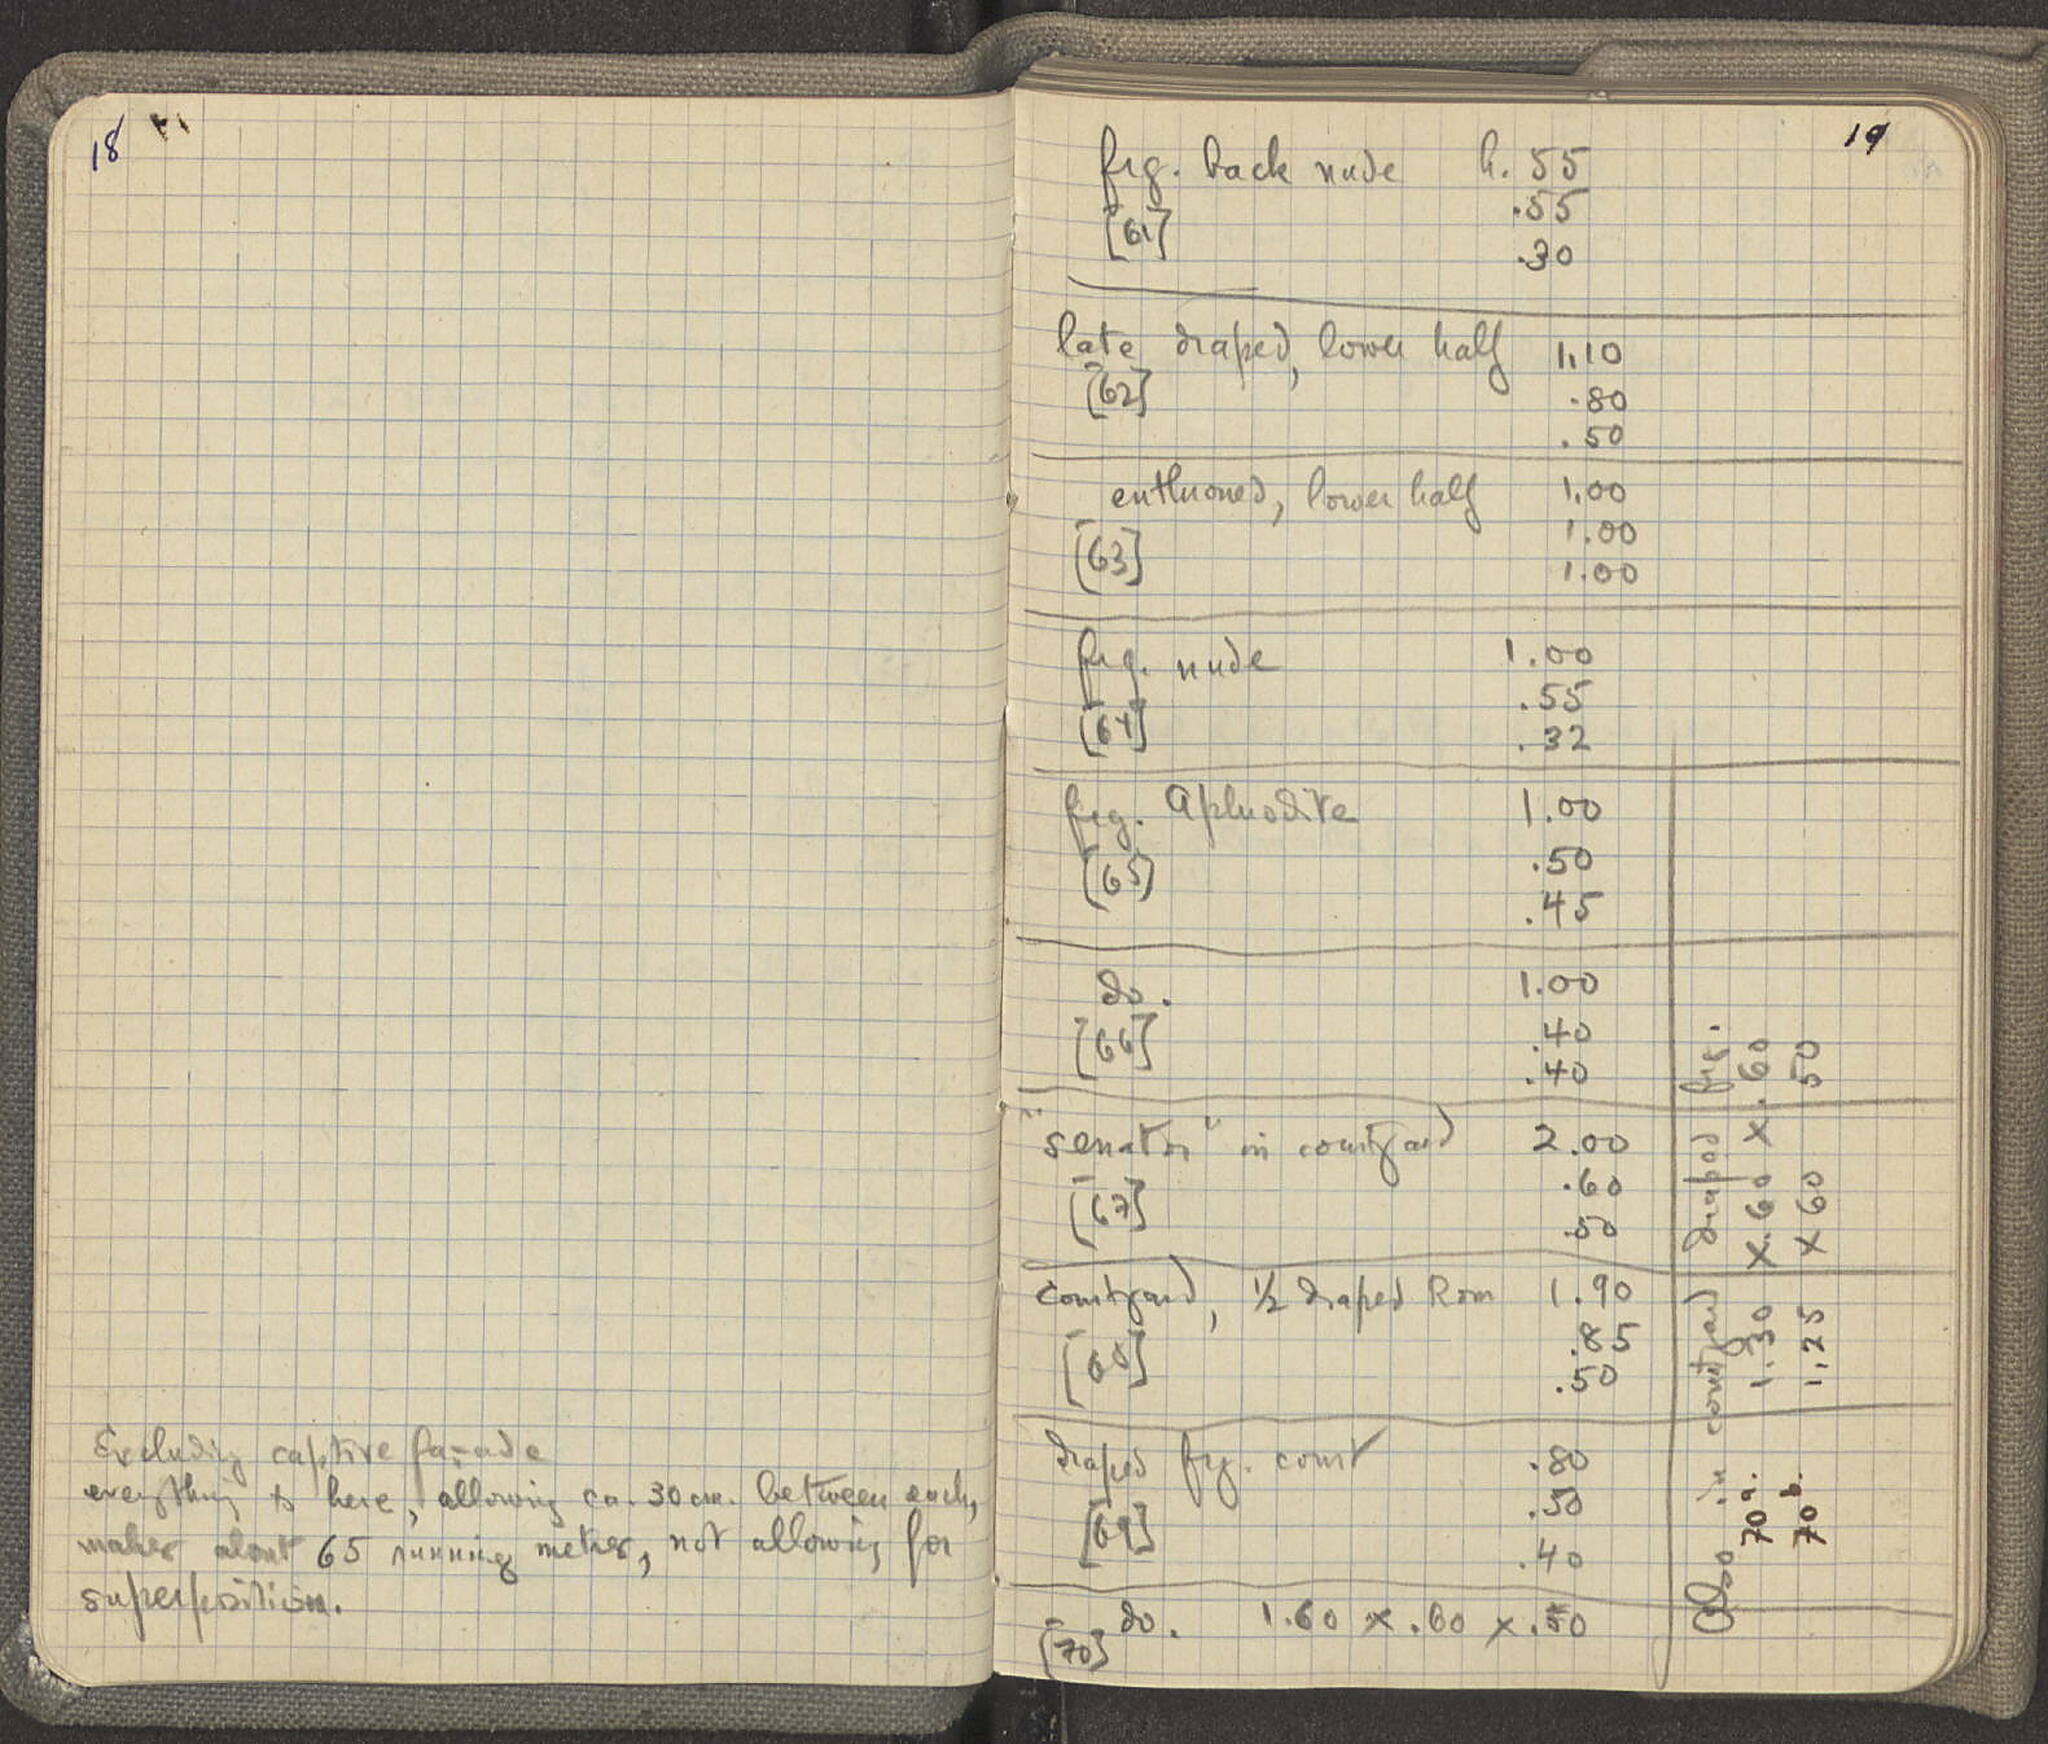 18
Excluding captive façade
everything to here, allowing ca. 30 cm. between each,
makes about 65 running metres, not allowing for
superposition.
19
frg. back nude h. 55
[61] .55
.30
late draped, lower half 1.10
[62] .80
.50
enthroned, lower half 1.00
1.00
[63] 1.00
frg. nude 1.00
.55
[64] .32
frg. Aphrodite 1.00
[65] .50
.45
do. 1.00
[66] .40
.40
"senator" in courtyard 2.00
[67] .60
.50
courtyard, 1/2 draped Rom 1.90
[68] .85
.50
draped frg. court .80
[69] .50
.40
[70] do. 1.60 x .60 x .50
Also in courtyard draped frg.
70a. 1.30 x .60 x .60
70b. 1.25 x 60 50